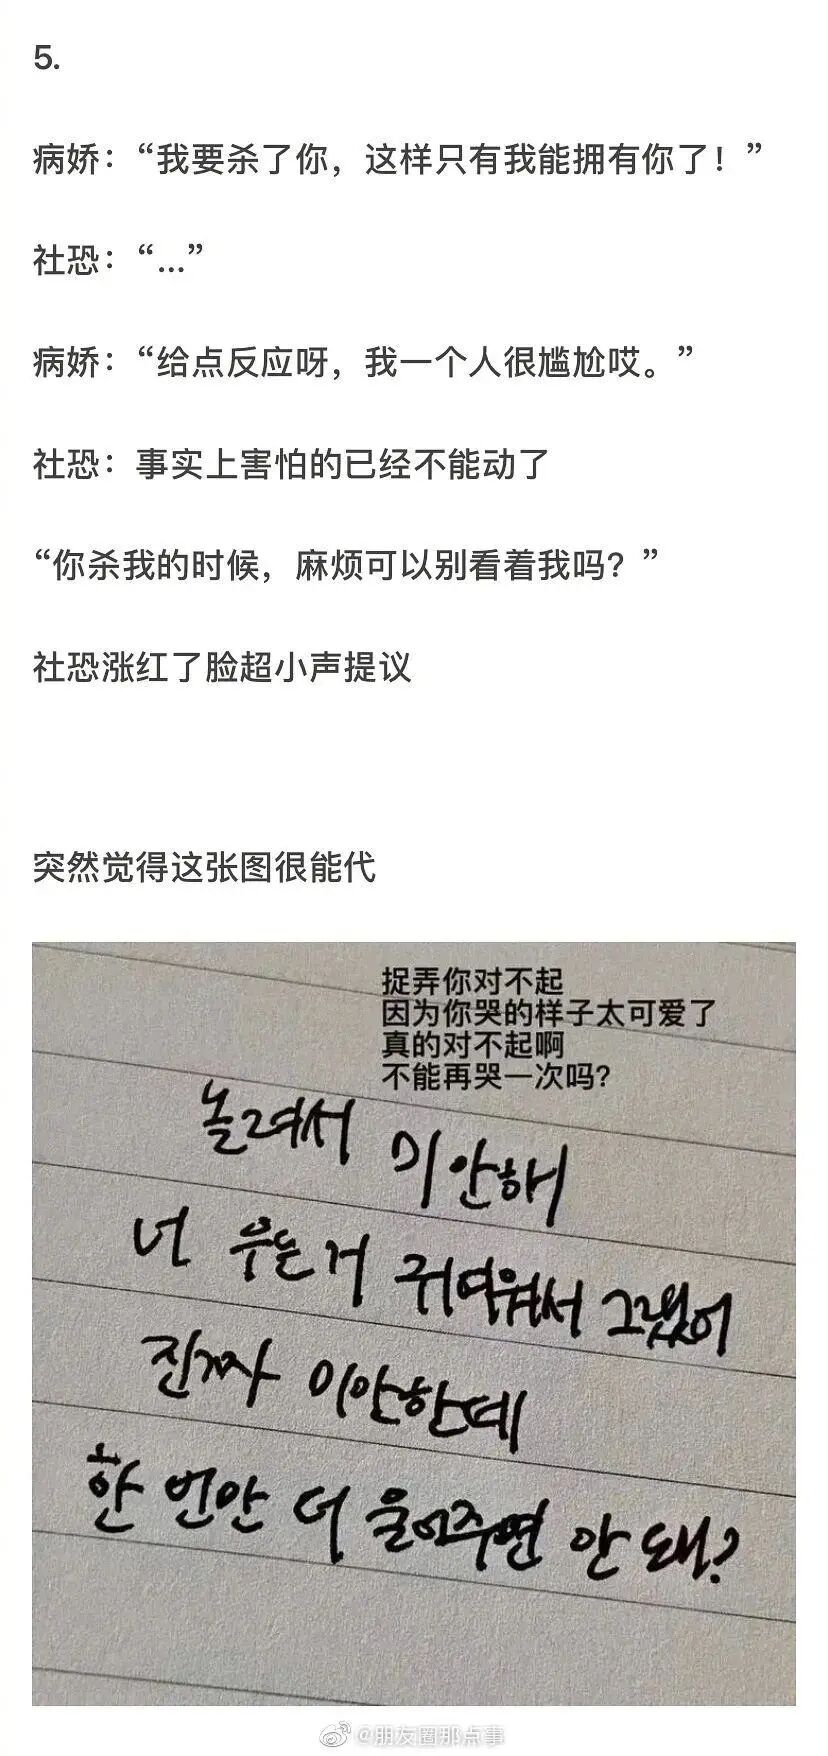 5.
病娇：“我要杀了你，这样只有我能拥有你了！”
社恐：“...”
病娇：“给点反应呀，我一个人很尴尬哎。”
社恐：事实上害怕的已经不能动了
“你杀我的时候，麻烦可以别看着我吗？”
社恐涨红了脸超小声提议
突然觉得这张图很能代
捉弄你对不起
因为你哭的样子太可爱了
真的对不起啊
不能再哭一次吗？
놀려서 미안해
너 우는거 귀여워서 그랬어
진짜 미안한데
한 번만 더 울어주면 안 돼?
@朋友圈那点事